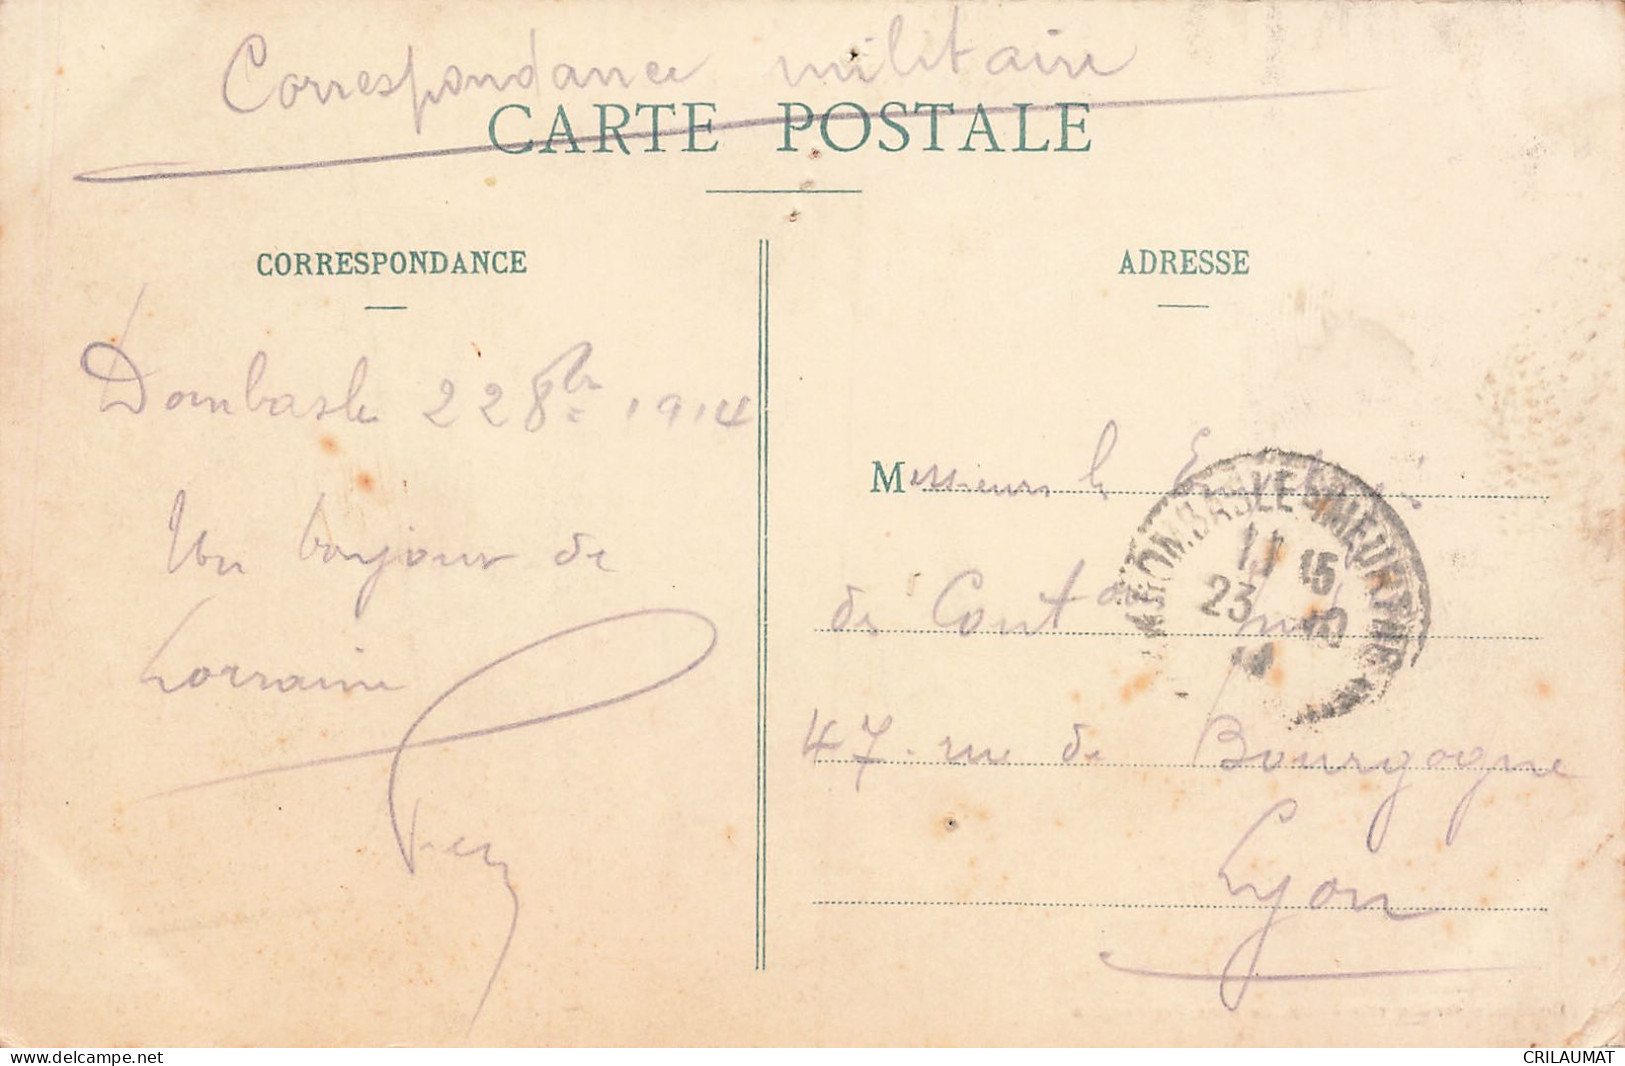 Correspondance militaire
CARTE POSTALE
CORRESPONDANCE
Dombasle 22 8bre 1914
Un bonjour de
Lorraine
ADRESSE
Messieurs le
de
47 rue de Bourgogne
Lyon
DOMBASLE S/MEURTHE
11 15
23 10
14
delcampe.net
CRILAUMAT